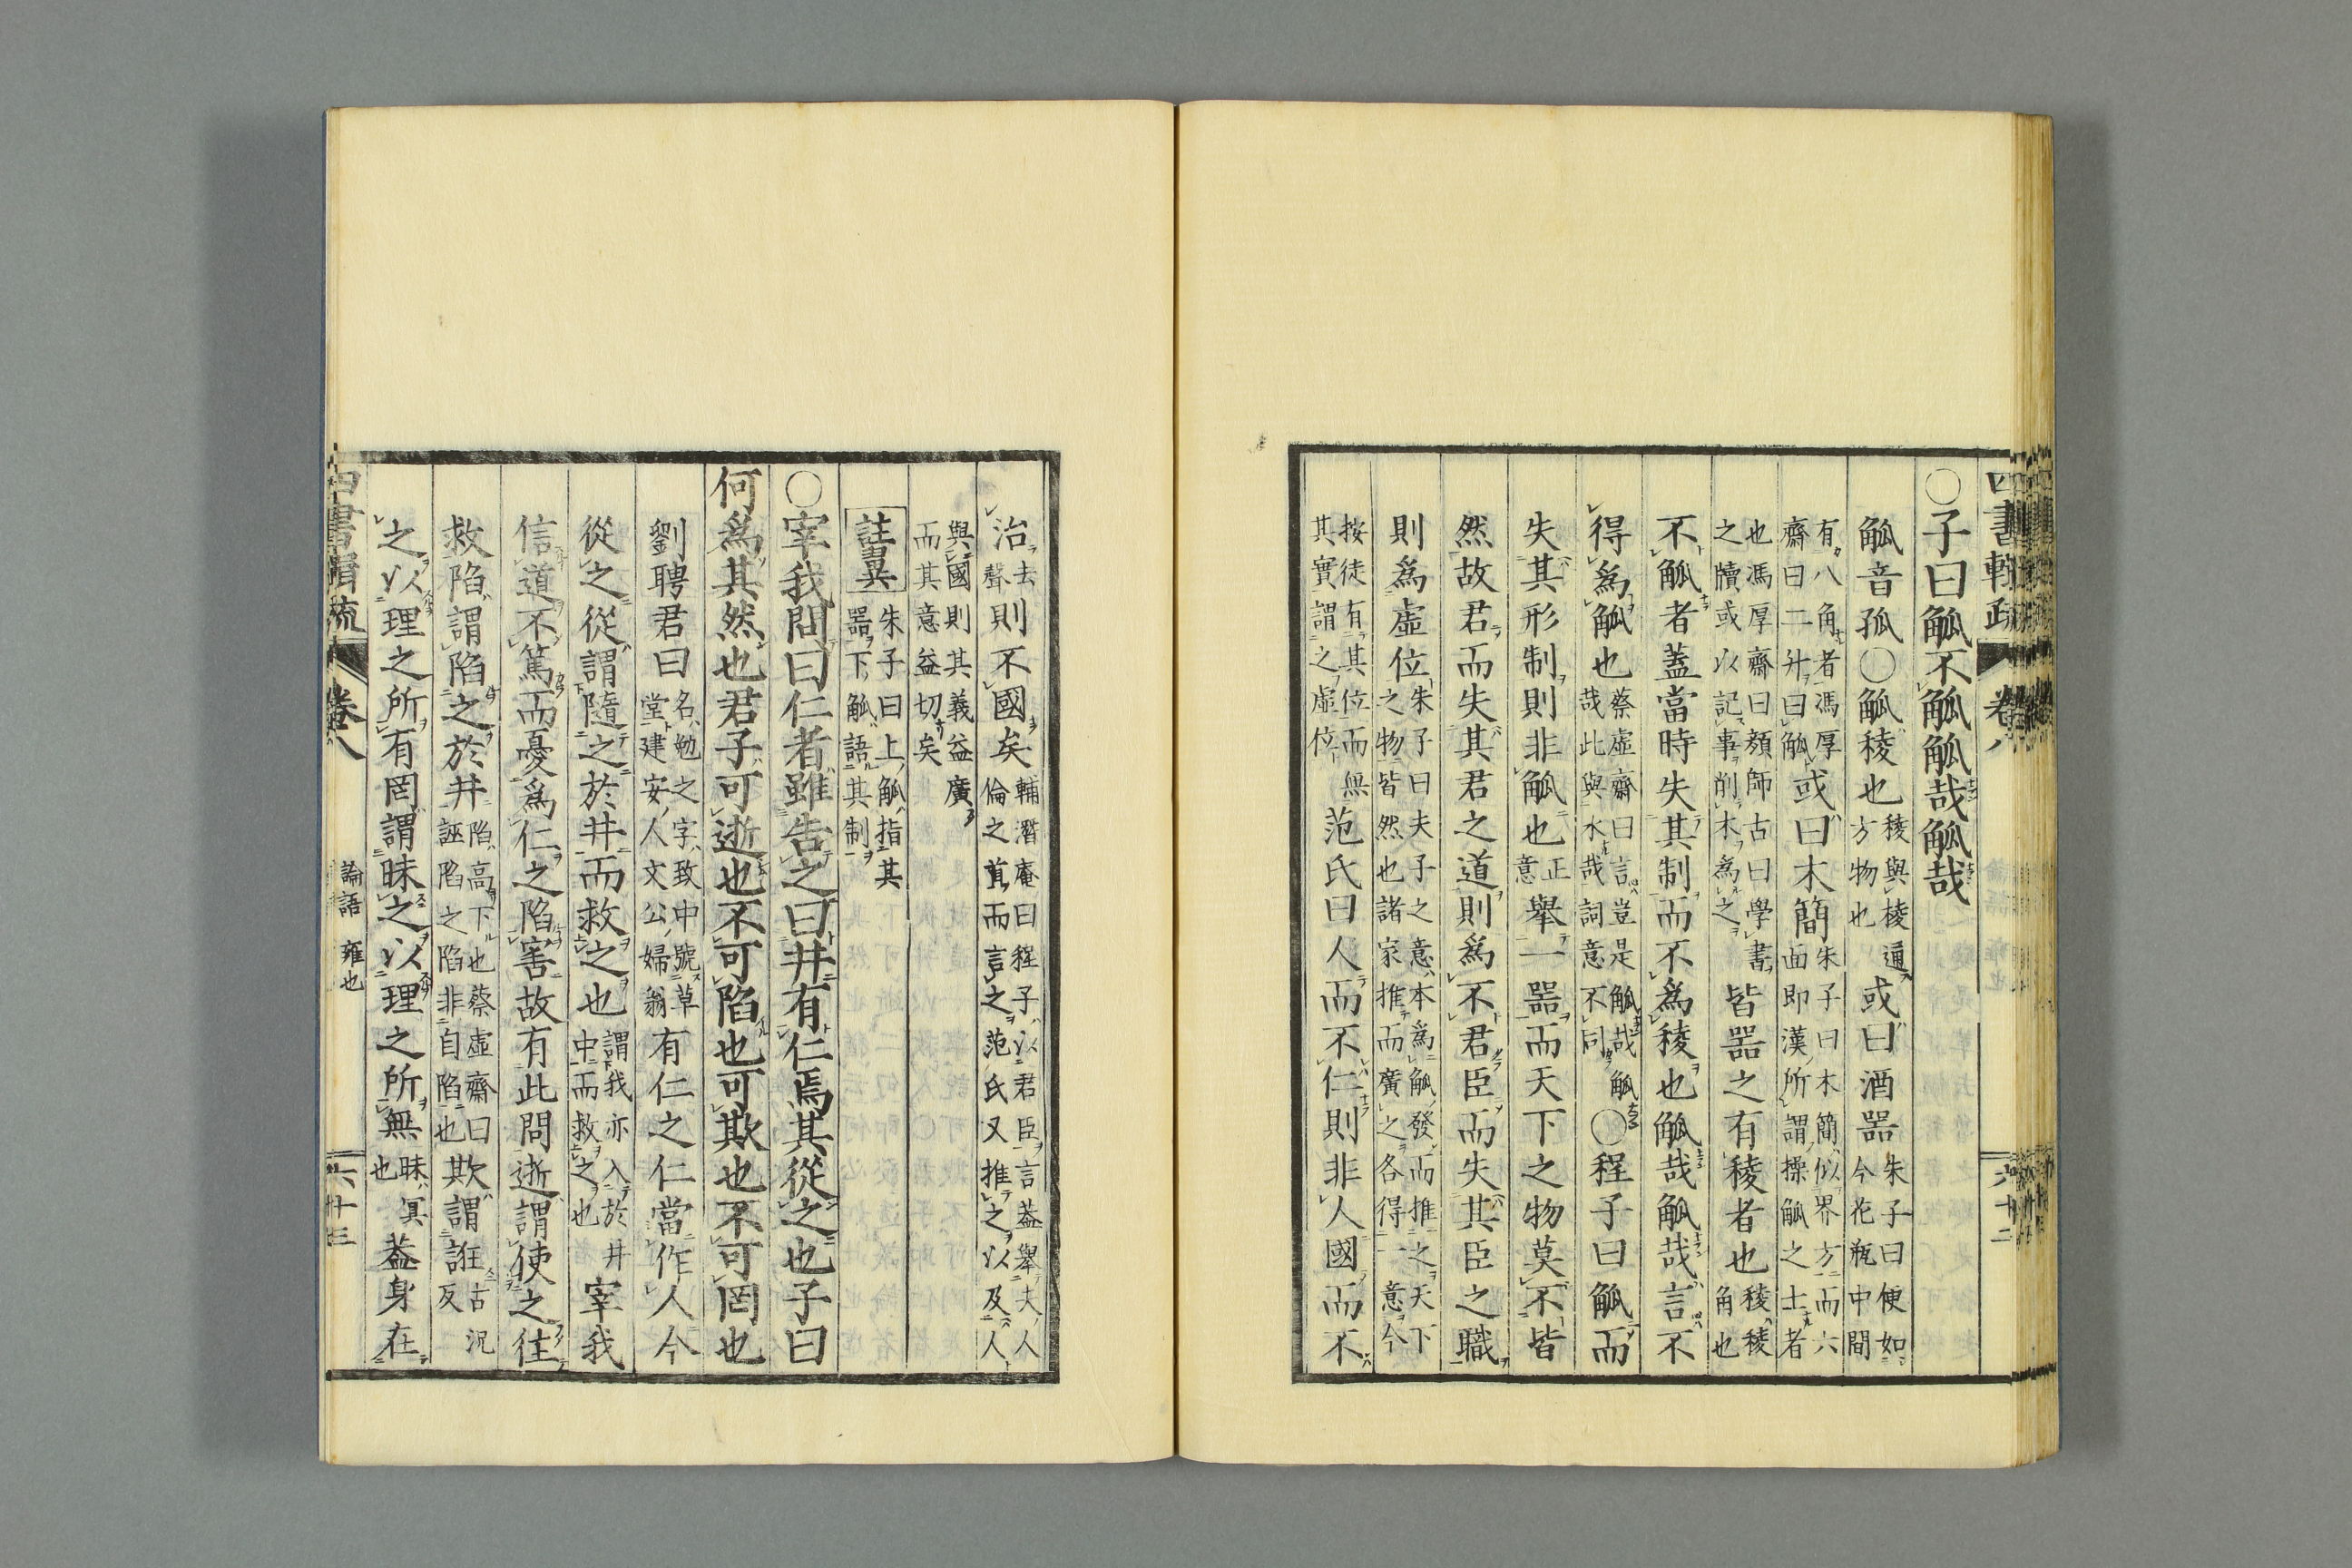 四書輯疏
卷八
六十二
○子曰觚不觚觚哉觚哉
觚音孤○觚稜也稜與棱通方物也或曰酒器朱子曰便如今花瓶中間
有八角者馮厚齋曰二升曰觚或曰木簡朱子曰木簡似界方而六面即漢所謂操觚之士者
也馮厚齋曰顏師古曰學書之牘或以記事削木爲之皆器之有稜者也稜稜角也
不觚者蓋當時失其制而不爲稜也觚哉觚哉言不
得爲觚也蔡虛齋曰言豈是觚哉觚哉此與水哉水哉詞意不同○程子曰觚而
失其形制則非觚也正意舉一器而天下之物莫不皆
然故君而失其君之道則爲不君臣而失其臣之職
則爲虛位朱子曰夫子之意本爲觚發而推之天下之物皆然也諸家推而廣之各得一意今
按徒有其位而無其實謂之虛位范氏曰人而不仁則非人國而不
治去聲則不國矣輔潛庵曰程子以君臣言蓋舉夫人倫之首而言之范氏又推之以及人
與國則其義益廣而其意益切矣
註異朱子曰上觚指其器下觚語其制
○宰我問曰仁者雖告之曰井有仁焉其從之也子曰
何爲其然也君子可逝也不可陷也可欺也不可罔也
劉聘君曰名勉之字致中號草堂建安人文公婦翁有仁之仁當作人今
從之從謂隨之於井而救之也謂我亦入於井中而救之也宰我
信道不篤而憂爲仁之陷害故有此問逝謂使之往
救陷謂陷之於井陷高下也蔡虛齋曰誣陷之陷非自陷也欺謂誑古況反
之以理之所有罔謂昧之以理之所無昧冥也蓋身在
四書輯疏
卷八
論語 雍也
六十三